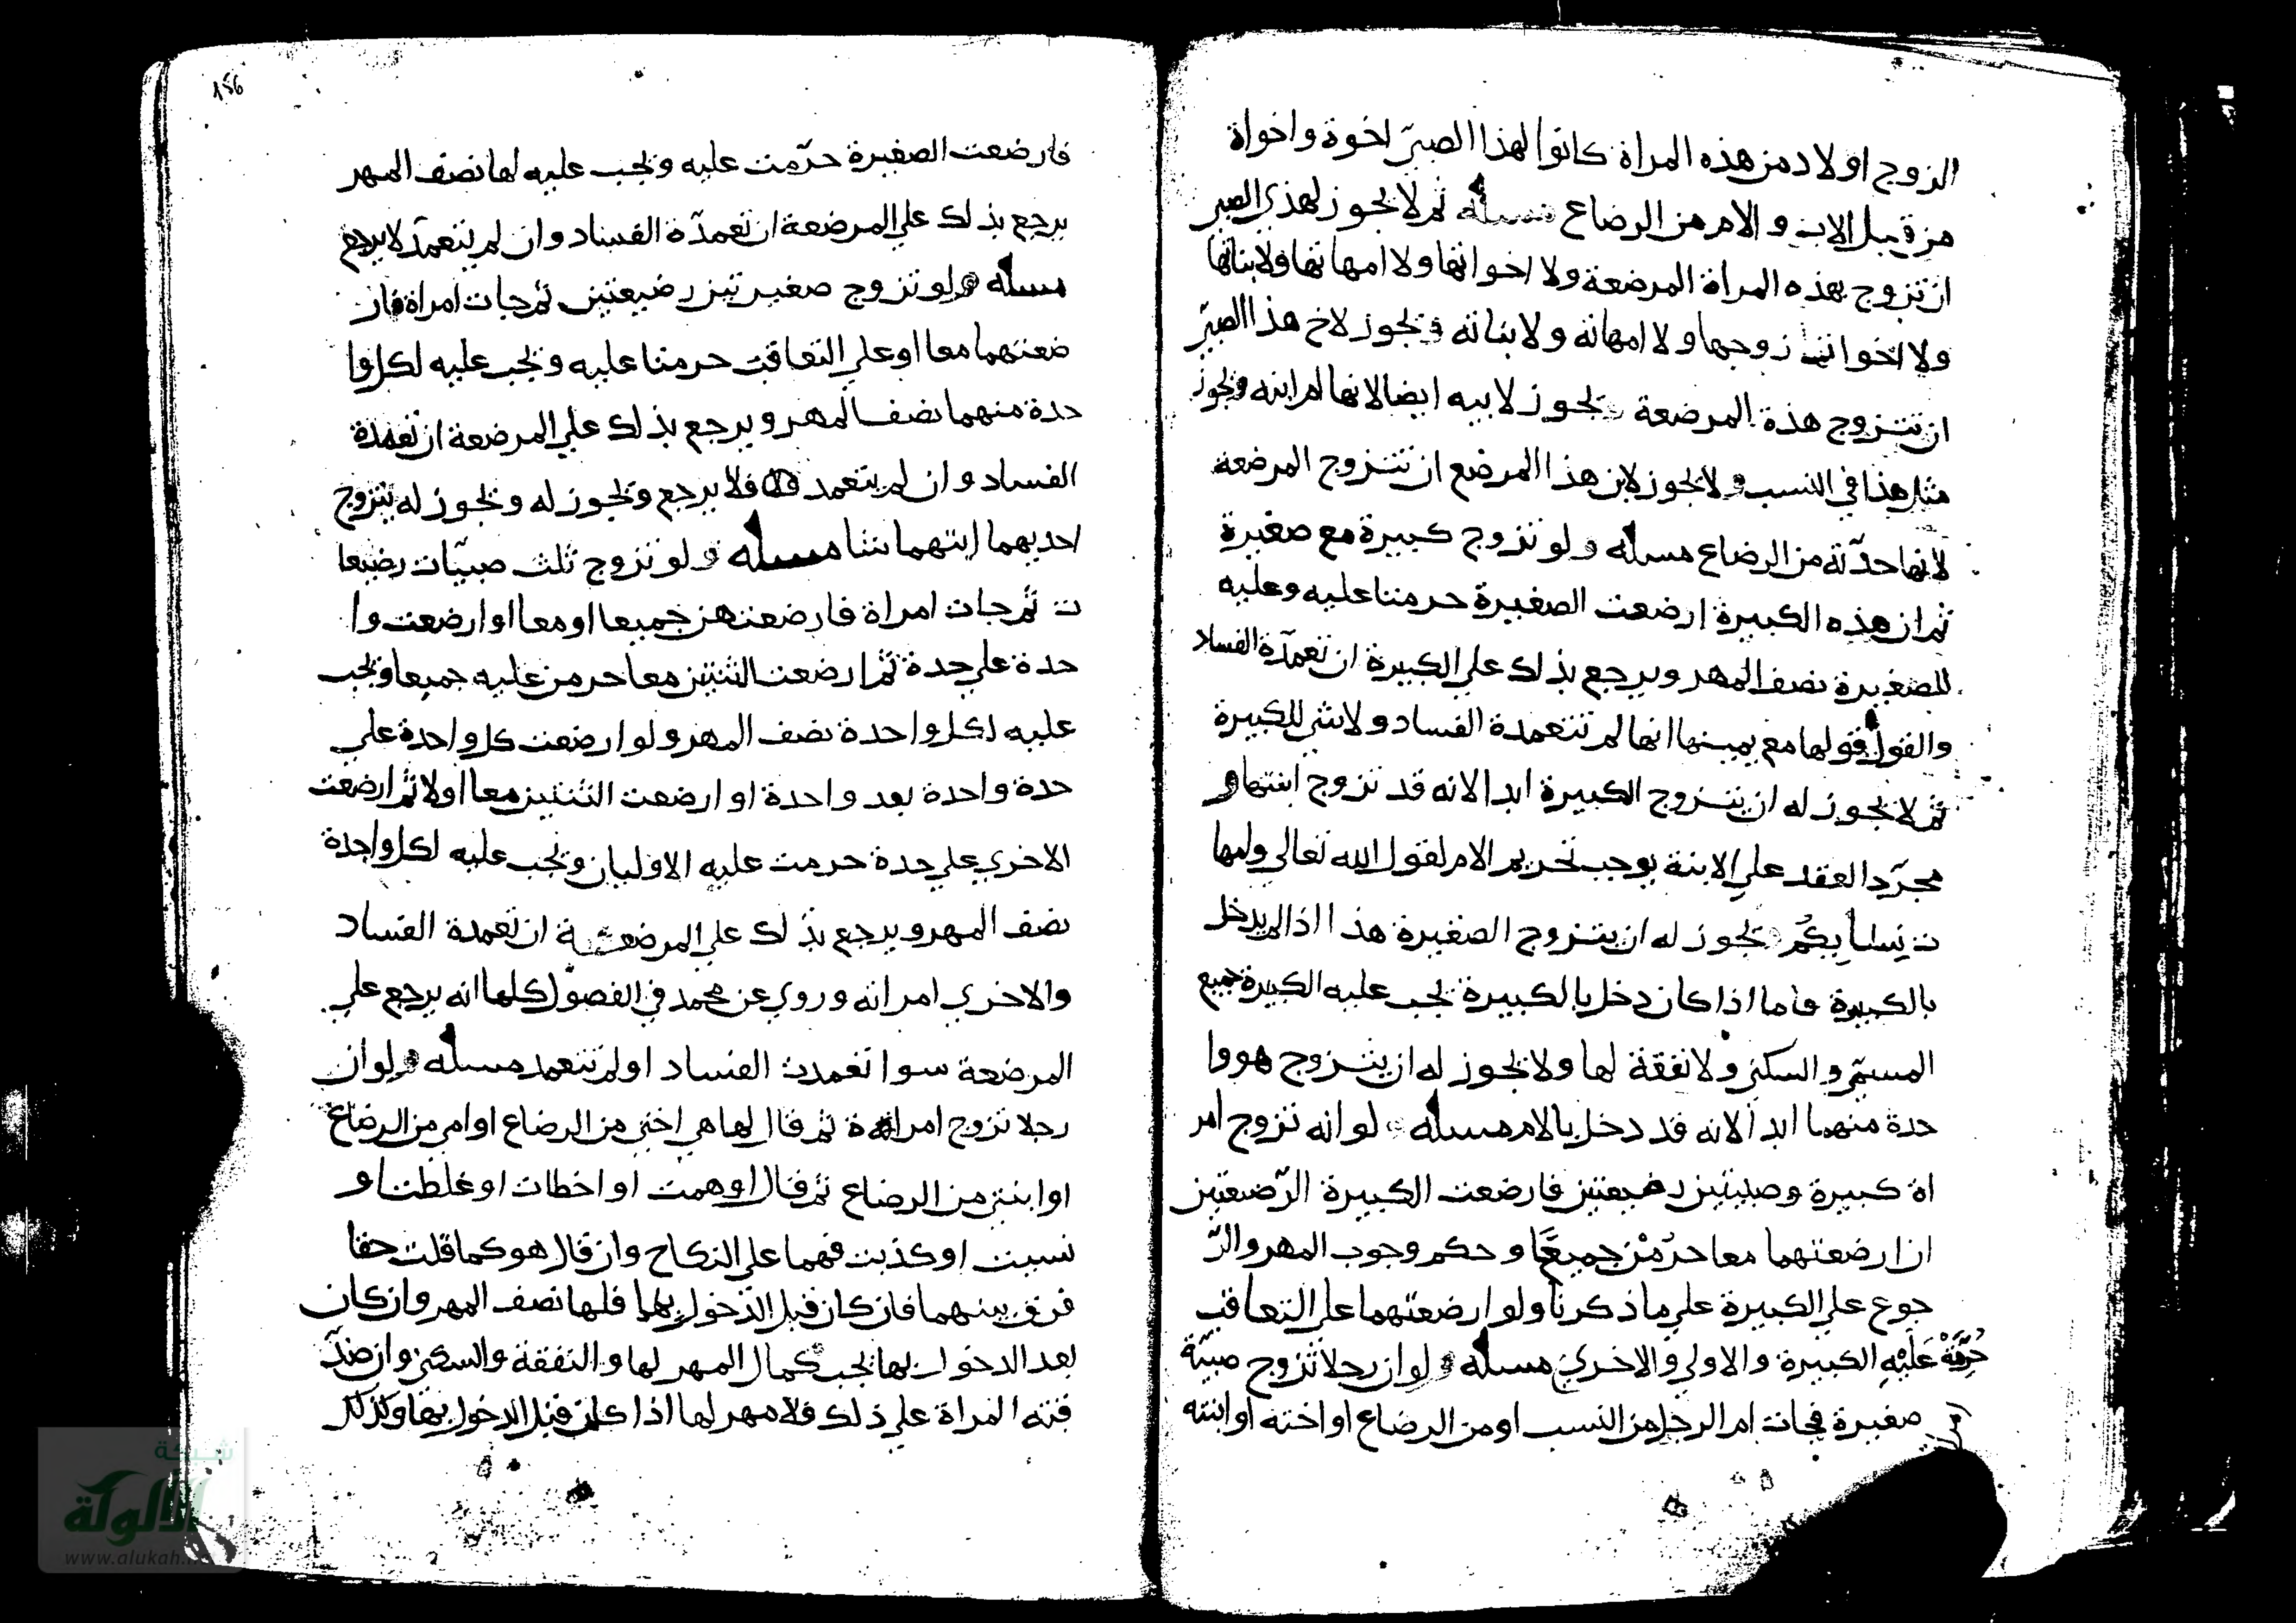 الزوج اولاد من هذه المراة كانوا لهذا الصبيّ اخوة واخواة
من قبل الاب والام من الرضاع مسىله ثم لا يجوز لهذي الصبي
ان تزوج بهذه المراة المرضعة ولا اخواتها ولا امهاتها ولا بناتها
ولا اخوا زوجها ولا امهاته ولا بناته ويجوز لاخ هذا الصبيّ
ان يتزوج هذة المرضعة ويجوز لابيه ايضا لانها ام ابنه ويجوز
مثل هذا في النسب ولا يجوز لابن هذا المرضع ان تتزوج المرضعة
لانها حدّته من الرضاع مسىله ولو تزوج كبيرة مع صغيرة
ثم ان هذه الكبيرة ارضعت الصغيرة حرمتا عليه وعليه
للصغيرة نصف المهر ويرجع بذلك علي الكبيرة ان تعمدّة الفساد
والقول قولها مع يمينها انها لم تتعمدة الفساد ولا شي للكبيرة
ثم لا يجوز له ان يتزوج الكبيرة ابدا لانه قد تزوج ابنتها و
مجرّد العقد علي الابنة يوجب تحريم الام لقول الله تعالي وامها
ت نِسايكُم ويجوز له ان يتزوج الصغيرة هذا اذا لم يدخل
بالكبيرة فاما اذا كان دخل بالكبيرة يجب عليه الكبيرة جميع
المسمّي والسكني ولا نفقة لها ولا يجوز له ان يتزوج هو وا
حدة منهما ابدا لانه قد دخل بالام مسىله لو انه تزوج امر
اة كبيرة وصبيتين رضيعتين فارضعت الكبيرة الرّضيعتين
ان ارضعتهما معا حرُمْن جميعًا وحكم وجوب المهر والرّ
جوع علي الكبيرة علي ما ذكرنا ولو ارضعتهما علي التعاقب
حُرِّمَةْ عَلَيْهِ الكبيرة والاولي والاخري مسىله ولو ان رجلا تزوج صبيّة
صغيرة فجات ام الرجل من النسب او من الرضاع او اخته او ابنته
156
فارضعت الصغيرة حرّمت عليه ويجب عليه لها نصف المهر
يرجع بذلك علي المرضعة ان تعمدّة الفساد وان لم يتعمدّ لا يرجع
مسىله ولو تزوج صغيرتين رضيعتين ثم جات امراة فار
ضعتهما معا او علي التعاقب حرمتا عليه ويجب عليه لكل وا
حدة منهما نصف المهر ويرجع بذلك علي المرضعة ان تعمدة
الفساد وان لم يتعمد فلا يرجع ويجوز له ويجوز له يتزوج
احديهما ايتهما شا مسىله ولو تزوج ثلث صبيّات رضيعا
ت ثم جات امراة فارضعتهن جميعا او معا او ارضعت وا
حدة علي حدة ثم ارضعت الثنتين معا حرمن عليه جميعا ويجب
عليه لكل واحدة نصف المهر ولو ارضعت كل واحدة علي
حدة واحدة بعد واحدة او ارضعت الثنتين معا اولا ثم ارضعت
الاخري علي حدة حرمت عليه الاوليان ويجب عليه لكل واحدة
نصف المهر ويرجع بذلك علي المرضعة ان تعمدة الفساد
والاخري امراته وروي عن محمد في الفصول كلها انه يرجع علي
المرضعة سوا تعمدت الفساد او لم تتعمد مسىله ولو ان
رجلا تزوج امراة ثم قال لها هي اختي من الرضاع او امي من الرضاع
او ابنتي من الرضاع ثم قال اوهمت او اخطات او غلطت او
نسيت او كذبت فهما علي النكاح وان قال هو كما قلت حقا
فرق بينهما فان كان قبل الدّخول بها فلها نصف المهر وان كان
بعد الدخول بها يجب كمال المهر لها والنفقة والسكني وان صدّ
قته المراة علي ذلك فلا مهر لها اذا كان قبل الدخول بها وكذلك
شبكة
الألوكة
www.alukah.n